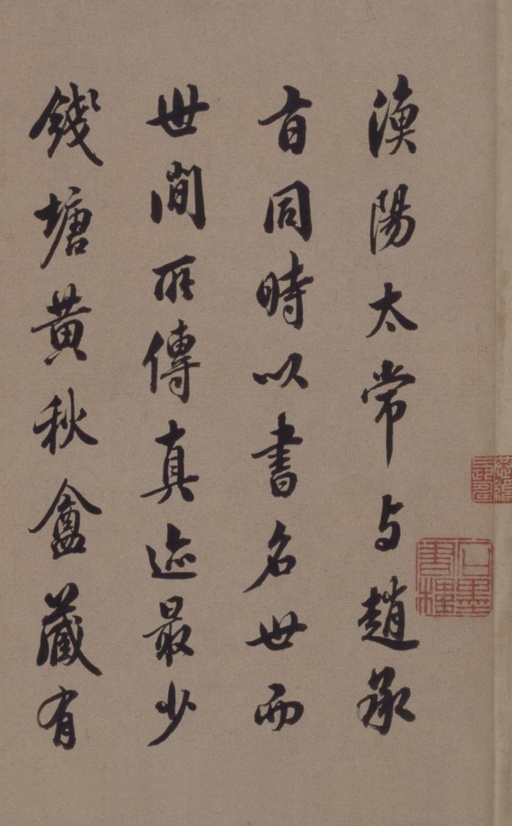 漁陽太常与趙承
旨同時以書名世而
世間所傳真迹最少
錢塘黄秋盦藏有
石墨書樓